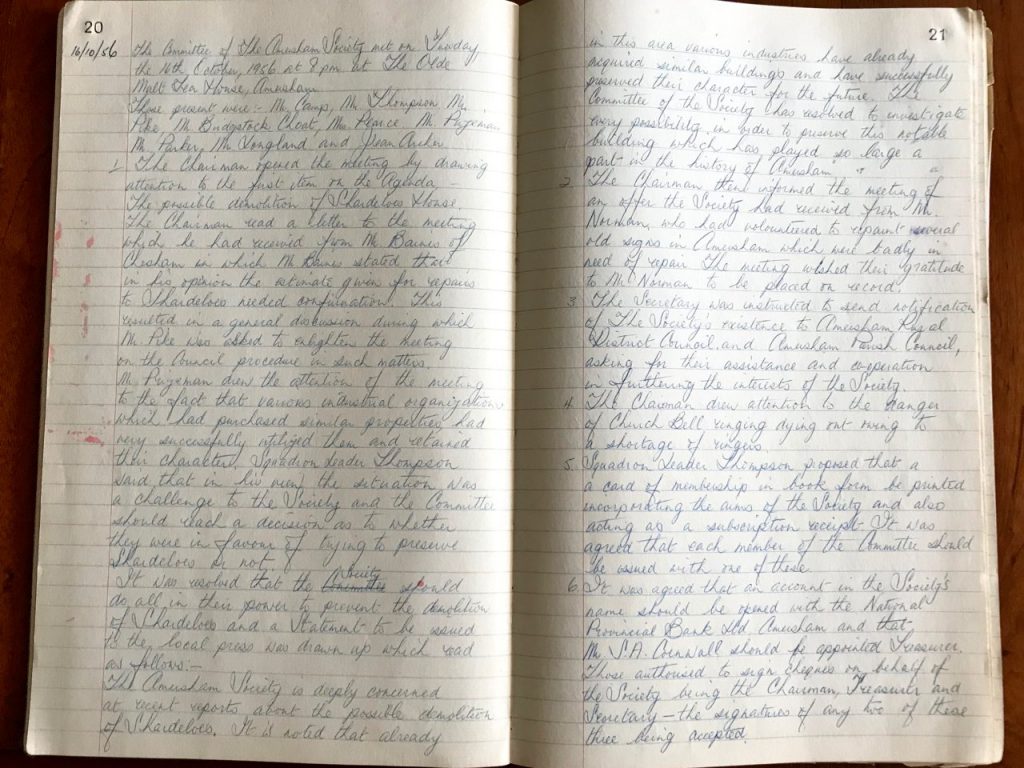 20
16/10/56 The Committee of The Amersham Society met on Tuesday,
the 16th October, 1956 at 8 pm at The Olde
Malt Tea House, Amersham.
Those present were:- Mr. Camp, Mr. Thompson, Mr.
Pike, Mr Bridgstock Choat, Mrs Pearce, Mr. Pryeman
Mr Parker, Mr Longland and Jean Archer
1. The Chairman opened the meeting by drawing
attention to the first item on the Agenda -
The possible demolition of Shardeloes House.
The Chairman read a letter to the meeting
which he had received from Mr Baines of
Chesham in which Mr Baines stated that
in his opinion the estimate given for repairs
to Shardeloes needed confirmation. This
resulted in a general discussion during which
Mr. Pike was asked to enlighten the meeting
on the Council procedure in such matters.
Mr. Pryeman drew the attention of the meeting
to the fact that various industrial organizations
which had purchased similar properties had
very successfully utilized them and retained
their character. Squadron Leader Thompson
said that in his view the situation was
a challenge to the Society and the Committee
should reach a decision as to whether
they were in favour of trying to preserve
Shardeloes or not.
It was resolved that the Committee Society should
do all in their power to prevent the demolition
of Shardeloes and a Statement to be issued
to the local press was drawn up which read
as follows:-
The Amersham Society is deeply concerned
at recent reports about the possible demolition
of Shardeloes. It is noted that already
21
in this area various industries have already
acquired similar buildings and have successfully
preserved their character for the future. The
Committee of the Society has resolved to investigate
every possibility in order to preserve this notable
building which has played so large a
part in the history of Amersham "
2. The Chairman then informed the meeting of
an offer the Society had received from Mr.
Norman, who had volunteered to repaint several
old signs in Amersham which were badly in
need of repair. The meeting wished their gratitude
to Mr Norman to be placed on record.
3. The Secretary was instructed to send notification
of The Society's existence to Amersham Rural
District Council and Amersham Parish Council,
asking for their assistance and co-operation
in furthering the interests of the Society.
4. The Chairman drew attention to the danger
of Church Bell ringing dying out owing to
a shortage of ringers.
5. Squadron Leader Thompson proposed that a
a card of membership in book form be printed
incorporating the aims of the Society and also
acting as a subscription receipt. It was
agreed that each member of the Committee should
be issued with one of these.
6. It was agreed that an account in the Society's
name should be opened with the National
Provincial Bank Ltd Amersham and that
Mr S.A. Cornwall should be appointed Treasurer.
Those authorised to sign cheques on behalf of
the Society being the Chairman, Treasurer and
Secretary - the signatures of any two of these
three being accepted.